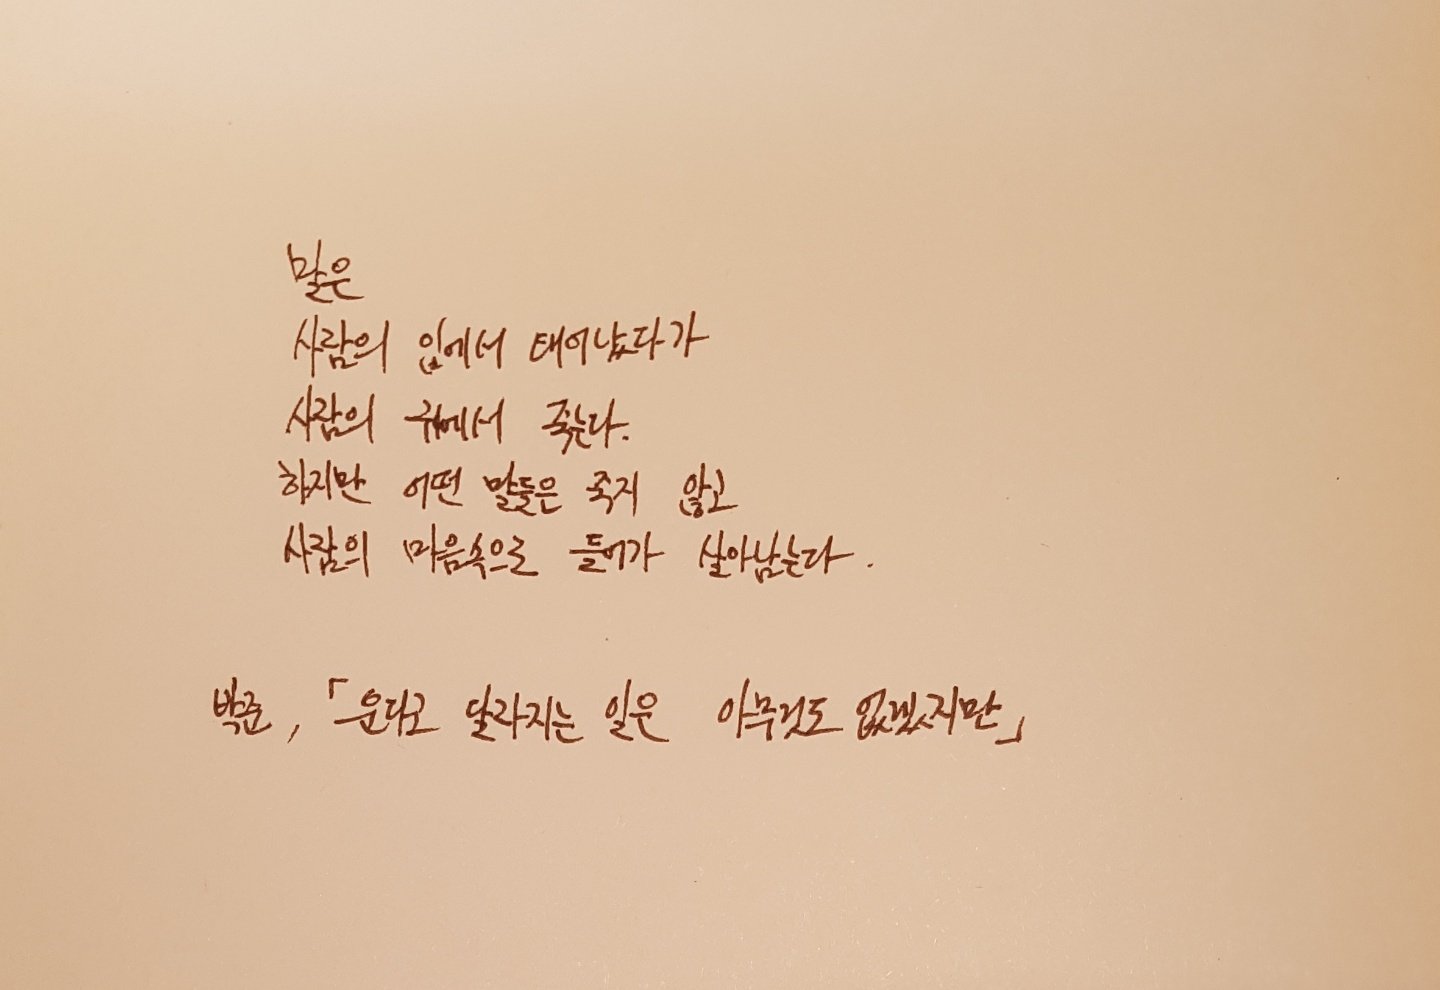 말은
사람의 입에서 태어났다가
사람의 귀에서 죽는다.
하지만 어떤 말들은 죽지 않고
사람의 마음속으로 들어가 살아남는다.
박준, 「운다고 달라지는 일은 아무것도 없겠지만」